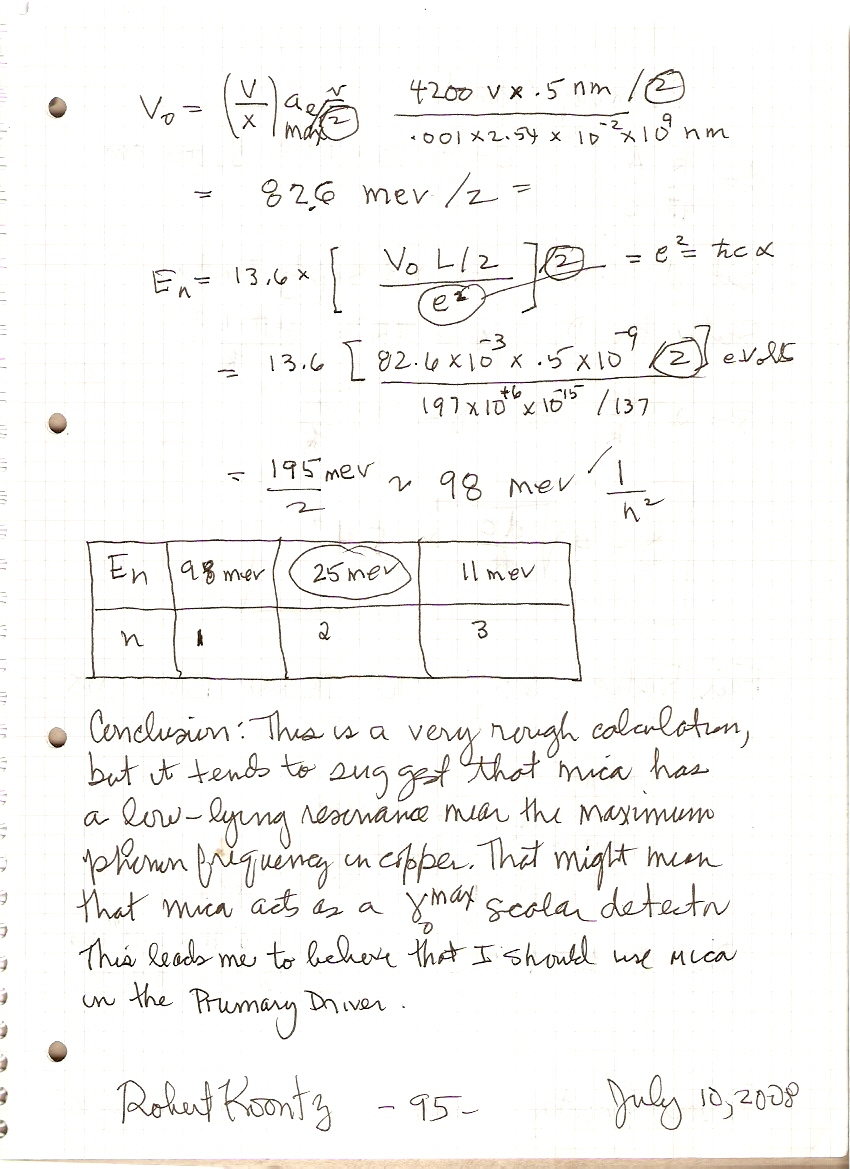 V₀ = (V/x)max a₀/②  4200 V x .5 nm /② / .001 x 2.54 x 10⁻² x 10⁹ nm
= 82.6 mev /2 =
Eₙ = 13.6 x [V₀ L/2 / e²]② = e² = ħcα
= 13.6 [82.6 x 10⁻³ x .5 x 10⁻⁹ /② / 197 x 10⁺⁶ x 10⁻¹⁵ /137] evolts
= 195 mev / 2 ~ 98 mev 1/n²
Eₙ 98 mev 25 mev 11 mev
n 1 2 3
Conclusion: This is a very rough calculation,
but it tends to suggest that mica has
a low-lying resonance near the maximum
phonon frequency in copper. That might mean
that mica acts as a γ₀ᵐᵃˣ scalar detector
This leads me to believe that I should use mica
in the Primary Driver.
Robert Koontz - 95 - July 10, 2008